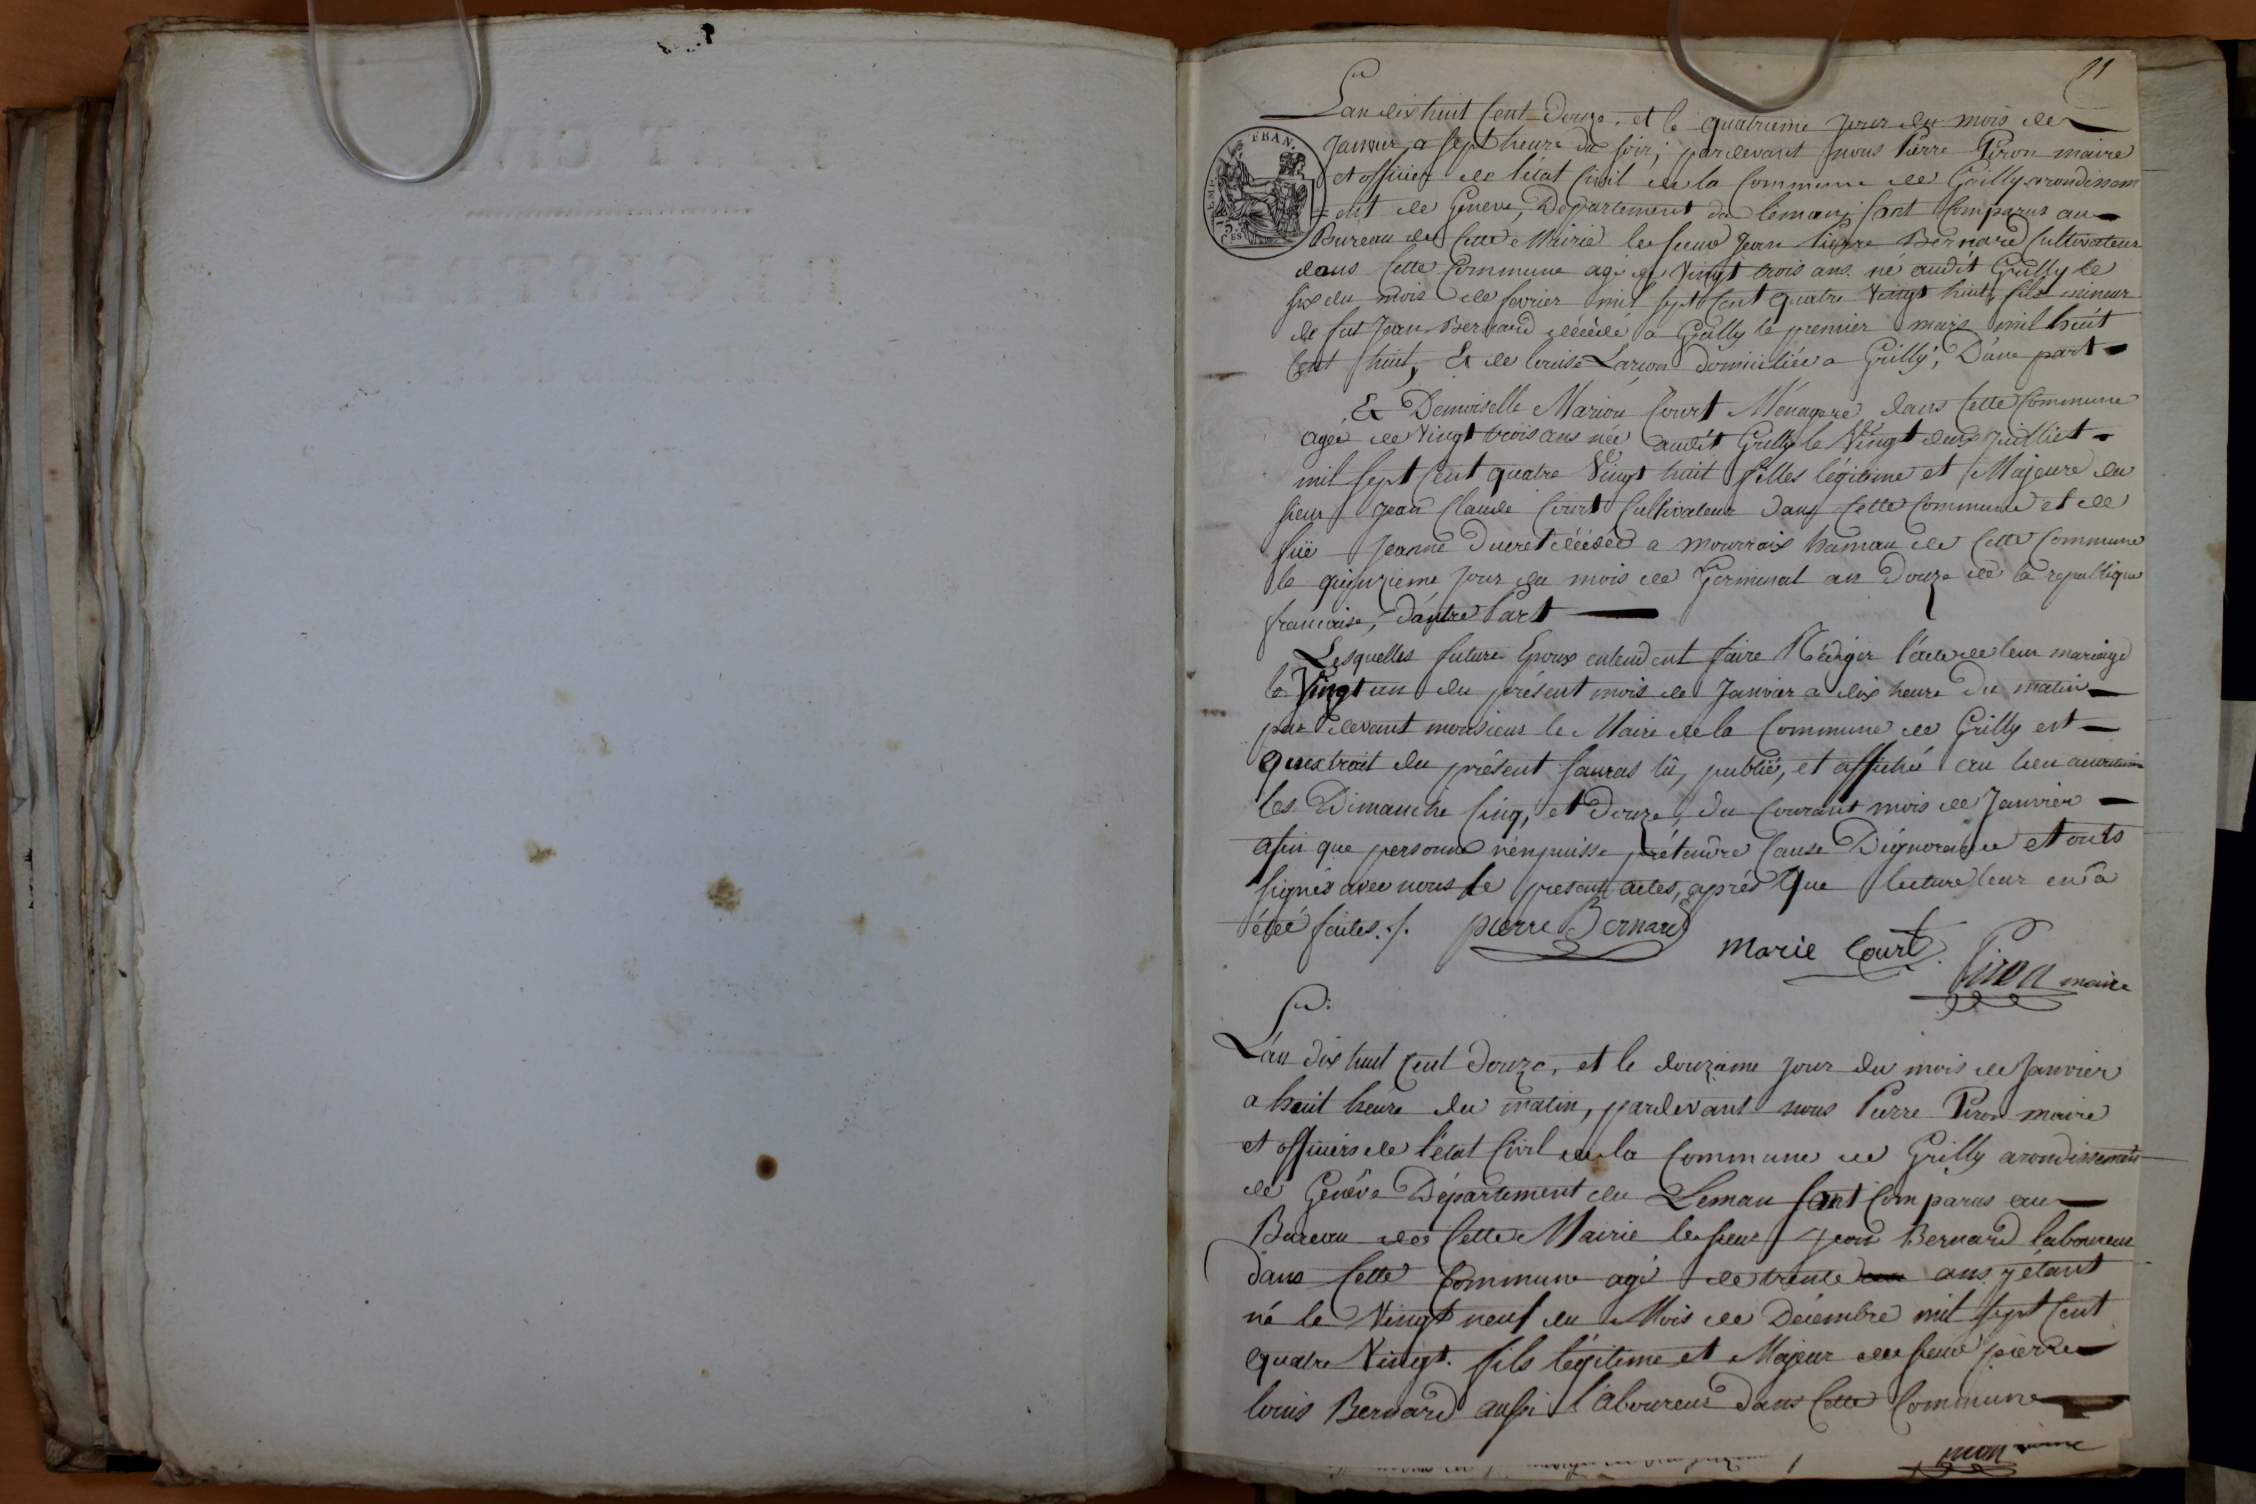 L'an dix huit Cent Douze. et le quatrieme jour du mois de
Janvier, a sept heure du soir, pardevant nous Pierre Piron maire
et officier de l'état Civil de la Commune de Grilly arondissem
= ent de Geneve, Département du leman; sont Comparus au
Bureau de Cette Mairie le sieur Jean Pierre Bernard Cultivateur
dans Cette Commune agé de Vingt trois ans. né audit Grilly le
six du mois de fevrier mil sept Cent quatre Vingt huit, fils mineur
de fut Jean Bernard décédé a Grilly le premier mars mil huit
Cent huit, Et de louise domiciliée a Grilly; D'une part
Et Demoiselle Marion Court Ménagere dans Cette Commune
agée de Vingt trois ans née audit Grilly le Vingt deux Juilliet
mil sept Cent quatre Vingt huit filles légitime et Majeure du
sieur Jean Claude Court Cultivateur dans Cette Commune et de
füe Jeanne Ducret décédée a mourraix hamau de Cette Commune
le quinzieme jour du mois de Germinal an Douze de la republique
francoise, d'autre Part
Lesquelles future Epoux entendent faire Rédiger l'acte de leur mariage
le Vingt un du présent mois de Janvier a dix heure du matin
par devant monsieur le Maire de la Commune de Grilly est
qu'extrait du présent sauras lû, publié, et affiché au lieu
les Dimanche Cinq, et Douze, du Courant mois de Janvier
afin que personne n'enpuisse prétendre Cause D'ignorance et onts
signés avec nous le present actes, aprés que lecture leur en a
étéé faites ./. pierre Bernard
Marie Court Piron maire
L'an dix huit Cent Douze, et le douzame jour du mois de Janvier
a huit heure du matin, pardevant nous Pierre Piron maire
et officiers de l'état Civil de la Commune de Grilly arondissement
de Genêve Département du Leman sont Comparus au
Bureau de Cette Mairie le sieur Jean Bernard laboureur
dans Cette Commune agé de trente ans y étant
né le Vingt neuf du Mois de Décembre mil sept Cent
quatre Vingt. fils légitime et Majeur de sieur pierre
louis Bernard aussi l'aboureur dans Cette Commune